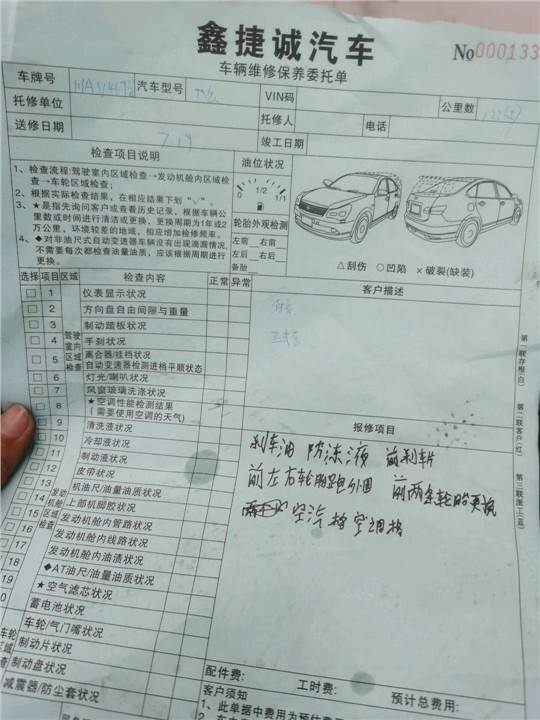 鑫捷诚汽车
车辆维修保养委托单
No 000133
车牌号 汽车型号 VIN码 公里数
托修单位 托修人 电话
送修日期 7.19 竣工日期
检查项目说明
1、检查流程:驾驶室内区域检查→发动机舱内区域检
查→车轮区域检查;
2、根据实际检查结果,在相应结果下划“√”。
3、★是指先询问客户或查看历史记录,根据车辆公
里数或时间进行清洁或更换,更换周期为1年或2
万公里,环境较差的地域,相应增加检修频率。
4、◆对非油尺式自动变速器车辆没有出现渗漏情况,
不需要每次都检查油量油质,应该根据周期进行
更换。
油位状况
0 1/2 1/1
轮胎外观检测
左前 右前
左后 右后
备胎
△刮伤 ○凹陷 ×破裂(缺装)
选择 项目 区域 检查内容 正常 异常
驾驶室内区域检查
1 仪表显示状况
2 方向盘自由间隙与重量
3 制动踏板状况
4 手刹状况
5 离合器/挂档状况
自动变速器检测进档平顺状态
6 灯光/喇叭状况
7 风窗玻璃洗涤状况
8 ★空调性能检测结果
(需要使用空调的天气)
发动机舱内区域检查
9 清洗液状况
10 冷却液状况
11 制动液状况
12 皮带状况
13 机油尺/油量油质状况
14 上部机脚胶状况
15 发动机舱内管路状况
16 发动机舱内线路状况
17 发动机舱内油渍状况
18 ◆AT油尺/油量油质状况
19 ★空气滤芯状况
蓄电池状况
车轮区
车轮/气门嘴状况
制动片状况
制动盘状况
减震器/防尘套状况
客户描述
报修项目
刹车油 防冻液 前刹车片
前左右轮胎跑外围 前两条轮胎更换
空汽格 空调格
配件费: 工时费: 预计总费用:
客户须知
1、此单据中费用为预估费
第一联存根(白)
第二联客户(红)
第三联派工(蓝)